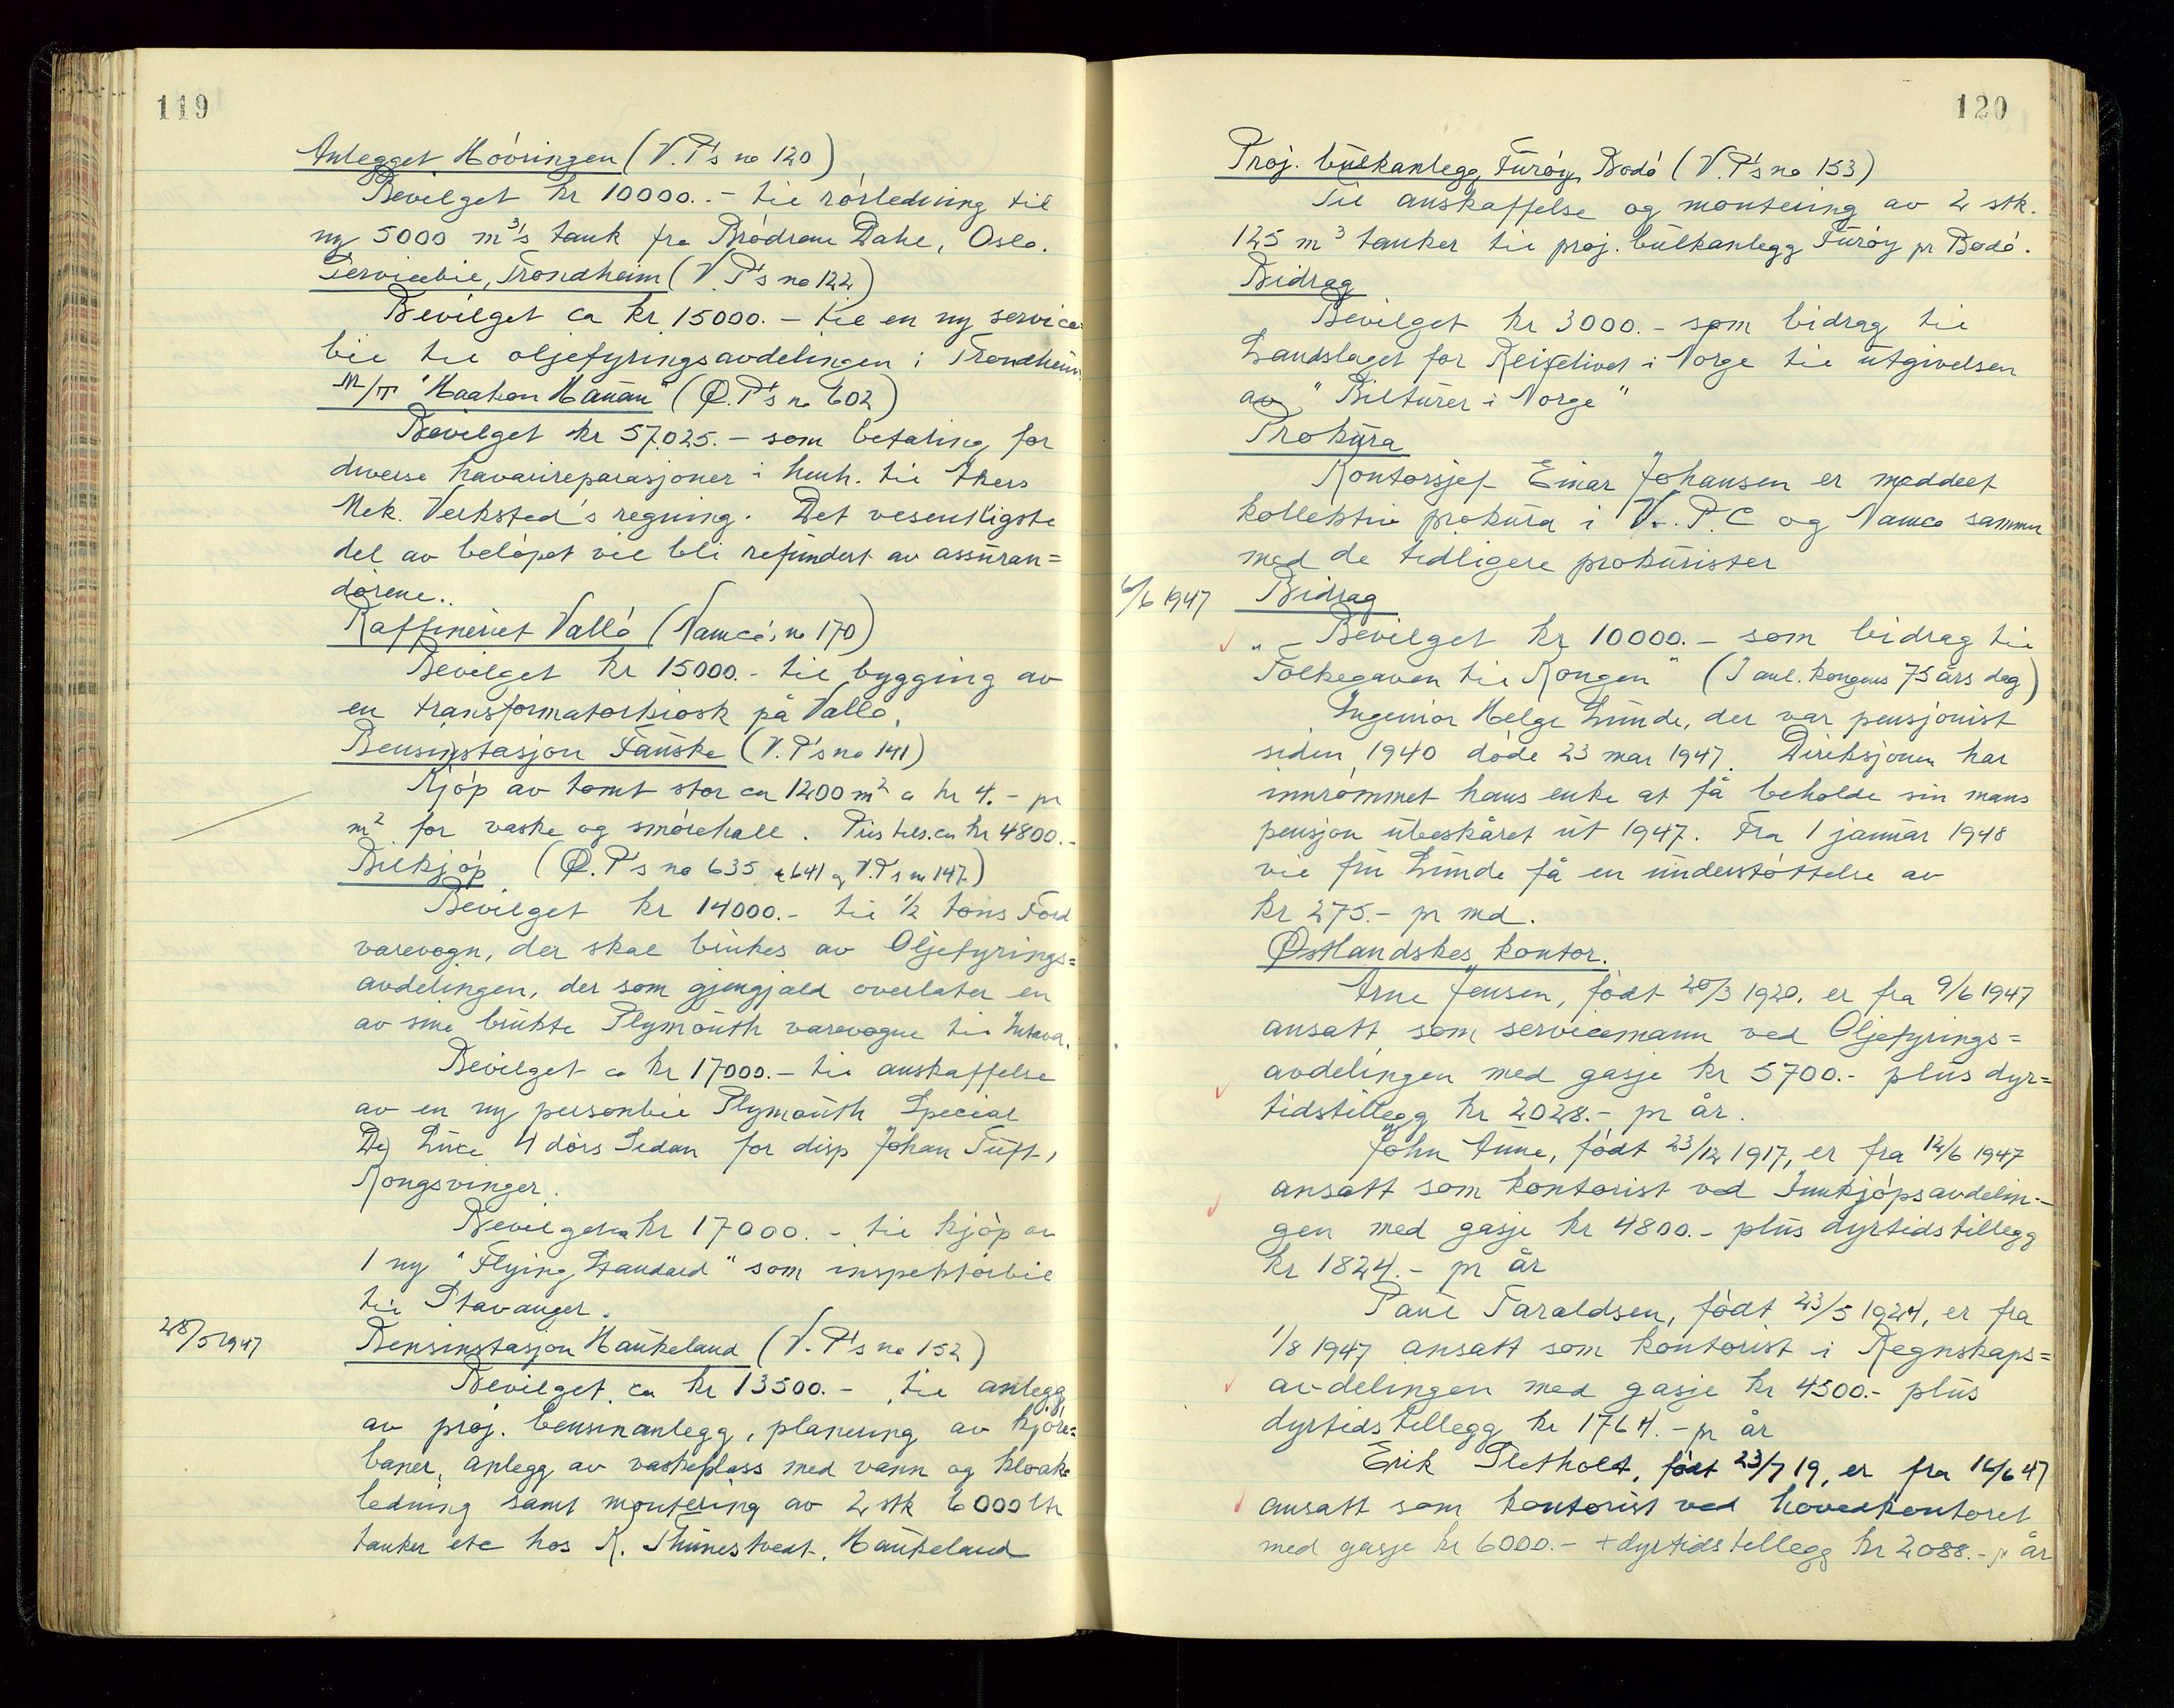 119
Anlegget Høvringen (V.P's no 120)
Bevilget kr 10000.- til rørledning til
ny 5000 m³'s tank fra Brødrene Dahl, Oslo.
Servicebil, Trondheim (V.P's no 122)
Bevilget ca kr 15000.- til en ny service
bil til oljefyringsavdelingen i Trondheim.
M/T "Haakon Hauan" (Ø.P's no 602)
Bevilget kr 57.025.- som betaling for
diverse havarireparasjoner i henh. til Akers
Mek. Verksted's regning. Det vesentligste
del av beløpet vil bli refundert av assuran=
dørene..
Raffineriet Vallø (Namco's no 170)
Bevilget kr 15000.- til bygging av
en transformatorkiosk på Vallø.
Bensinstasjon Fauske (V.P's no 141)
Kjøp av tomt stor ca 1200 m² a kr 4.- pr
m² for vaske og smørehall. Pris tils. ca kr 4800.-
Bilkjøp (Ø.P's no 635 & 641 og V.P's no 147)
Bevilget kr 14000.- til ½ tons Ford
varevogn, der skal brukes av Oljefyrings=
avdelingen, der som gjengjeld overlater en
av sine brukte Plymouth varevogne til Intava.
Bevilget ca kr 17000.- til anskaffelse
av en ny personbil Plymouth Special
De Luxe 4 dørs Sedan for disp Johan Tuft,
Kongsvinger.
Bevilget ca kr 17000.- til kjøp av
1 ny "Flying Standard" som inspektørbil
til Stavanger.
28/5 1947
Bensinstasjon Haukeland (V.P's no 152)
Bevilget ca kr 13500.- til anlegg
av proj. bensinanlegg, planering av kjøre=
baner, anlegg av vaskeplass med vann og kloak=
ledning samt montering av 2 stk 6000 ltr
tanker etc hos K. Thunestvedt, Haukeland
120
Proj. bulkanlegg, Furøy, Bodø (V.P's no 153)
Til anskaffelse og montering av 2 stk.
125 m³ tanker til proj. bulkanlegg Furøy pr Bodø.
Bidrag
Bevilget kr 3000.- som bidrag til
Landslaget for Reiselivet i Norge til utgivelsen
av "Bilturer i Norge"
Prokura
Kontorsjef Einar Johansen er meddelt
kollektiv prokura i V.P.C og Namco sammen
med de tidligere prokurister
6/6 1947
Bidrag
Bevilget kr 10000.- som bidrag til
"Folkegaven til Kongen" (I anl. kongens 75 års dag)
Ingeniør Helge Lunde, der var pensjonist
siden 1940 døde 23 mar 1947. Direksjonen har
innrømmet hans enke at få beholde sin mans
pensjon ubeskåret ut 1947. Fra 1 januar 1948
vil fru Lunde få en understøttelse av
kr 275.- pr md.
Østlandskes kontor.
Arne Jensen, født 20/3 1920, er fra 9/6 1947
ansatt som servicemann ved Oljefyrings=
avdelingen med gasje kr 5700.- plus dyr=
tidstillegg kr 2028.- pr år.
John Aune, født 23/12 1917, er fra 12/6 1947
ansatt som kontorist ved Innkjøpsavdelin-
gen med gasje kr 4800.- plus dyrtidstillegg
kr 1824.- pr år
Paul Taraldsen, født 23/5 1924, er fra
1/8 1947 ansatt som kontorist i Regnskaps=
avdelingen med gasje kr 4500.- plus
dyrtidstillegg kr 1764.- pr år
Erik Sletholt, født 23/7 19, er fra 16/6 47
ansatt som kontorist ved hovedkontoret
med gasje kr 6000.- + dyrtidstillegg kr 2088.- pr år